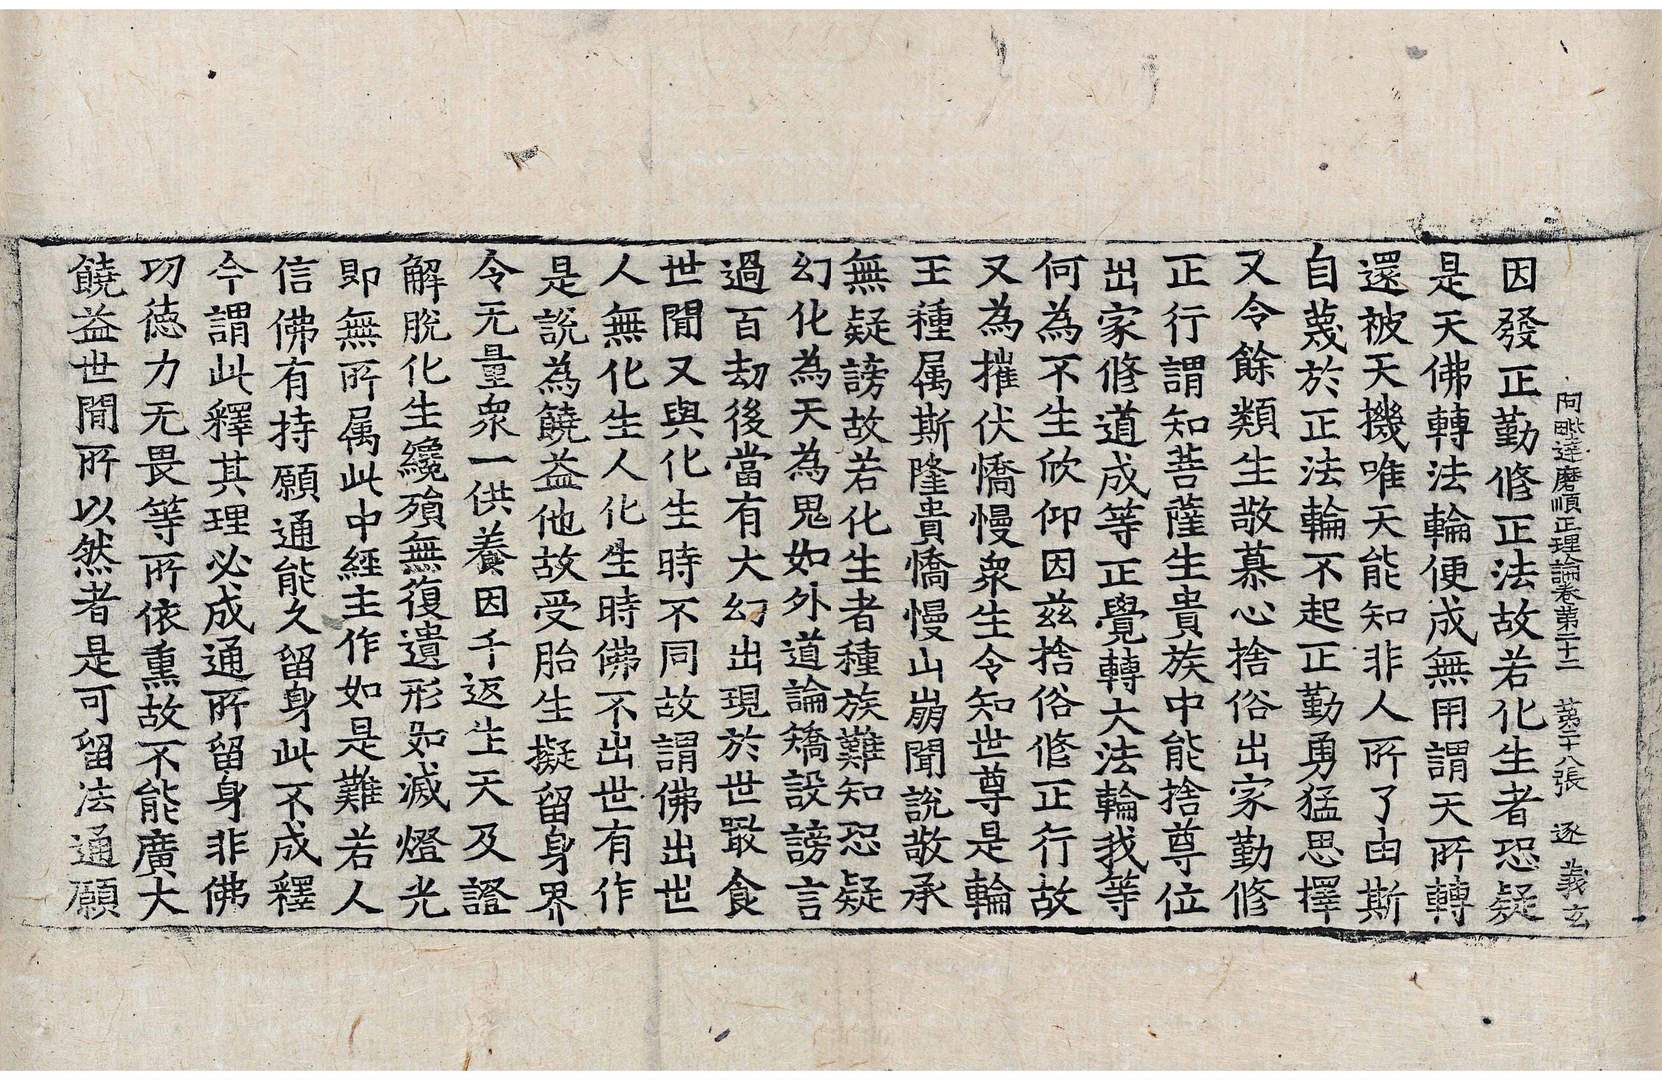 阿毗達磨順正理論卷第二十二 第十八張 逐 義玄
因發正勤修正法故若化生者恐疑
是天佛轉法輪便成無用謂天所轉
還被天機唯天能知非人所了由斯
自蔑於正法輪不起正勤勇猛思擇
又令餘類生敬慕心捨俗出家勤修
正行謂知菩薩生貴族中能捨尊位
出家修道成等正覺轉大法輪我等
何為不生欣仰因茲捨俗修正行故
又為摧伏憍慢衆生令知世尊是輪
王種属斯隆貴憍慢山崩聞說敬承
無疑謗故若化生者種族難知恐疑
幻化為天為鬼如外道論矯設謗言
過百劫後當有大幻出現於世㝡食
世閒又與化生時不同故謂佛出世
人無化生人化生時佛不出世有作
是說為饒益他故受胎生擬留身界
令无量衆一供養因千返生天及證
解脫化生纔殞無復遺形如滅燈光
即無所属此中經主作如是難若人
信佛有持願通能久留身此不成釋
今謂此釋其理必成通所留身非佛
功德力无畏等所依熏故不能廣大
饒益世閒所以然者是可留法通願